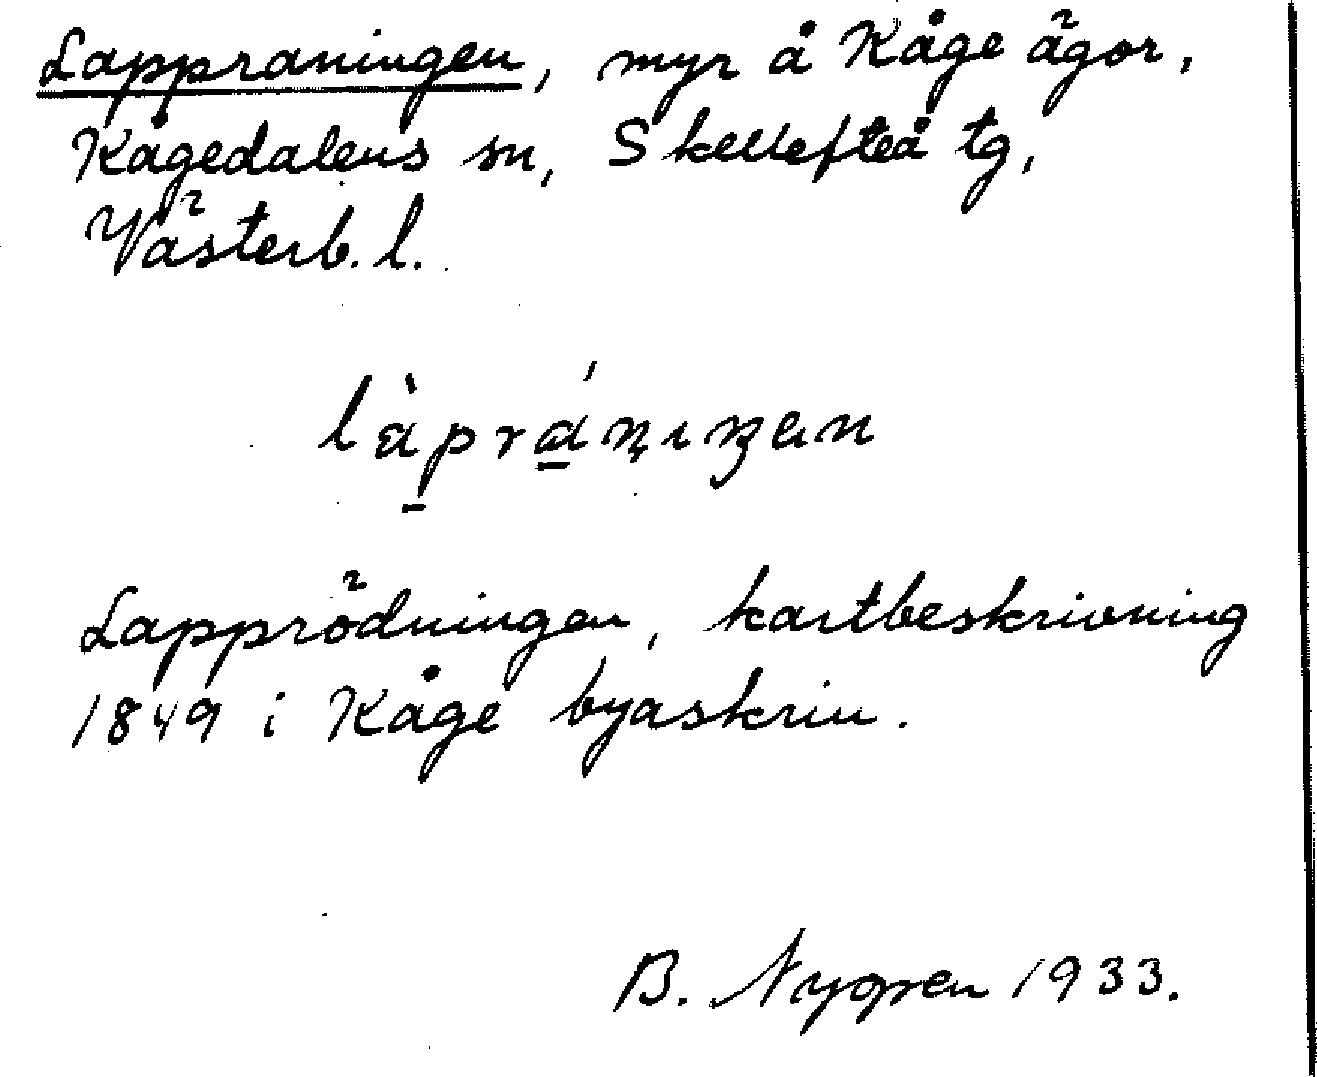 Lappraningen, myr å Kåge ägor,
Kågedalens sn, Skellefteå tg,
Västerb. l.
làpránıŋen
Lapprödningen, kartbeskrivning
1849 i Kåge byaskrin.
B. Nygren 1933.